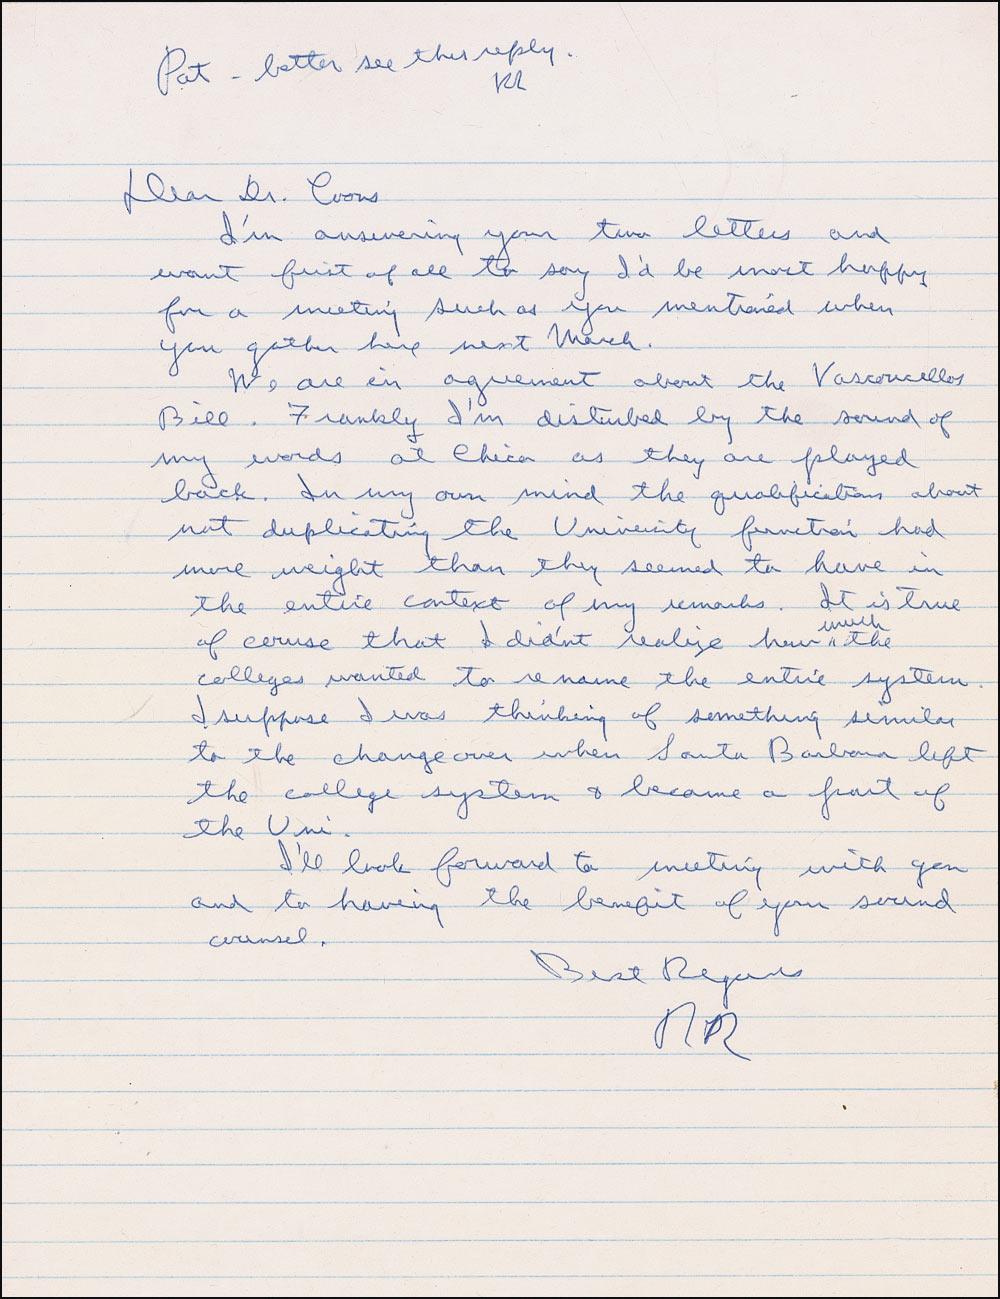 Pat - better see this reply.
RR
Dear Dr. Coons
I'm answering your two letters and
want first of all to say I'd be most happy
for a meeting such as you mentioned when
you gather here next March.
We are in agreement about the Vasconcellos
Bill. Frankly I'm disturbed by the sound of
my words at Chico as they are played
back. In my own mind the qualifications about
not duplicating the University function had
more weight than they seemed to have in
the entire context of my remarks. It is true
of course that I didn't realize how much the
colleges wanted to rename the entire system.
I suppose I was thinking of something similar
to the changeover when Santa Barbara left
the college system & became a part of
the Uni.
I'll look forward to meeting with you
and to having the benefit of your sound
counsel.
Best Regards
RR